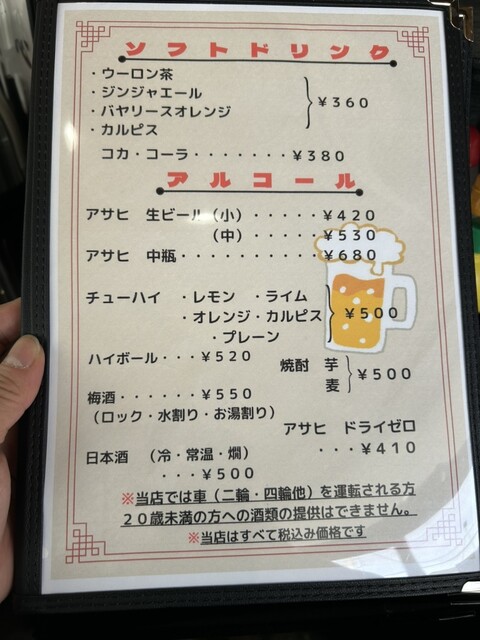 ソフトドリンク
・ウーロン茶
・ジンジャエール
・バヤリースオレンジ
・カルピス
￥３６０
コカ・コーラ・・・・・・・￥３８０
アルコール
アサヒ　生ビール（小）・・・・・￥４２０
（中）・・・・・￥５３０
アサヒ　中瓶・・・・・・・・・・￥６８０
チューハイ　・レモン　・ライム
・オレンジ・カルピス
・プレーン
￥５００
ハイボール・・・￥５２０
焼酎　芋
麦
￥５００
梅酒・・・・・・￥５５０
（ロック・水割り・お湯割り）
アサヒ　ドライゼロ
・・・￥４１０
日本酒　（冷・常温・燗）
・・・￥５００
※当店では車（二輪・四輪他）を運転される方
２０歳未満の方への酒類の提供はできません。
※当店はすべて税込み価格です